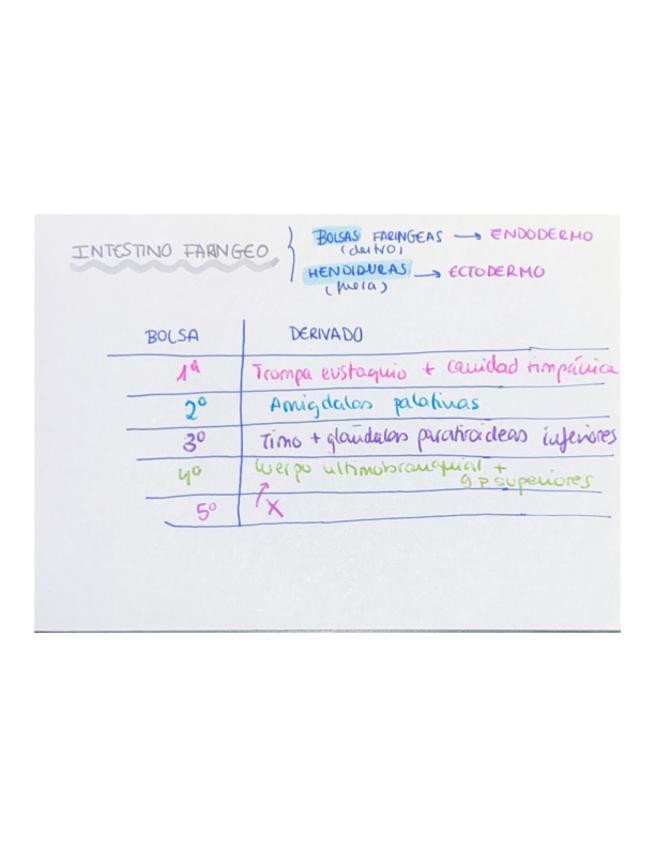 INTESTINO FARINGEO
BOLSAS FARINGEAS → ENDODERMO
(dentro)
HENDIDURAS → ECTODERMO
(fuera)
BOLSA DERIVADO
1ª Trompa eustaquio + cavidad timpánica
2º Amígdalas palatinas
3º Timo + glándulas paratiroideas inferiores
4º Cuerpo ultimobranquial +
g p superiores
5º X